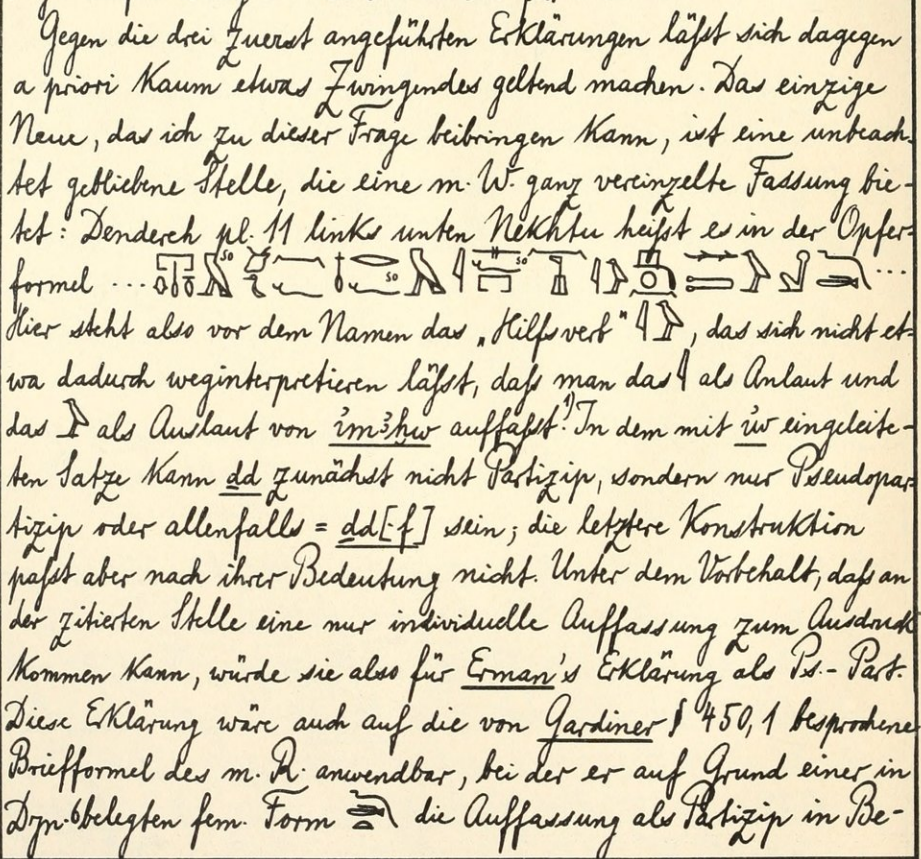 Gegen die drei zuerst angeführten Erklärungen läßt sich dagegen
a priori kaum etwas Zwingendes geltend machen. Das einzige
Neue, das ich zu dieser Frage beibringen kann, ist eine unbeach-
tet gebliebene Stelle, die eine m. W. ganz vereinzelte Fassung bie-
tet: Dendereh pl. 11 links unten Nekhtu heißt es in der Opfer-
formel ... so so so ...
Hier steht also vor dem Namen das „Hilfsverb" 𓇋𓅱, das sich nicht et-
wa dadurch weginterpretieren läßt, daß man das 𓇋 als Anlaut und
das 𓅱 als Auslaut von i̓mꜣḫw auffaßt.¹⁾ In dem mit i̓w eingeleite-
ten Satze kann ḏd zunächst nicht Partizip, sondern nur Pseudopar-
tizip oder allenfalls = ḏd[·f] sein; die letztere Konstruktion
paßt aber nach ihrer Bedeutung nicht. Unter dem Vorbehalt, daß an
der zitierten Stelle eine nur individuelle Auffassung zum Ausdruck
kommen kann, würde sie also für Erman's Erklärung als Ps.-Part.
Diese Erklärung wäre auch auf die von Gardiner § 450,1 besprochene
Briefformel des m. R. anwendbar, bei der er auf Grund einer in
Dyn. 6 belegten fem. Form die Auffassung als Partizip in Be-